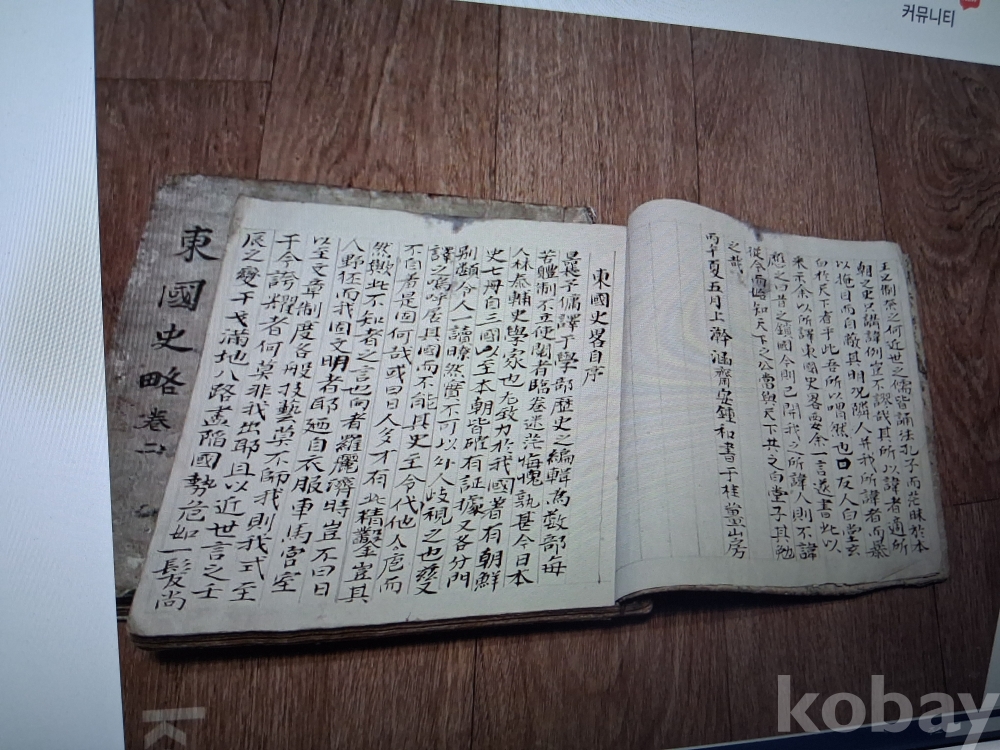 커뮤니티
東國史略 卷二
東國史畧自序
子備譯于學部歷史之編輯爲敎部每
苦軆制不立使閱者臨卷迷茫悔愧孰甚今日本
人林泰輔史學家也尤致力於我國著有朝鮮
史七冊自三國以至本朝皆確有証據又各分門
別類令人一讀瞭然實不可以外人歧視之也玆又
譯之嗚呼居其國而不能其史至令代他人之庖而
不自着是固何哉或曰日人多才有此精鑿豈其
然歟此不知者之言也向者羅麗濟時豈不曰日
人野狂而我固文明者耶廼自衣服車馬宮室
以至文章制度各般技藝莫不師我則我式至
于今誇耀者何莫非我出耶且以近世言之士
辰之變干戈滿地八路盡陷國勢危如一髮尚
之何近世之儒皆誦法孔子而茫昧於本
朝之史以講諱例豈不謬哉其所以諱者適所
以掩目而自蔽其明況隣人幷我所諱者而暴
白於天下者乎此吾所以喟然也日友人白堂玄
采示余以所譯東國史畧要余一言遂書此以
應之曰昔之鎖國今則已開我之所諱人則不諱
從今而知天下之公當與天下共之白堂子其勉
之哉
丙午夏五月上澣涵齋安鍾和書于桂堂山房
kobay